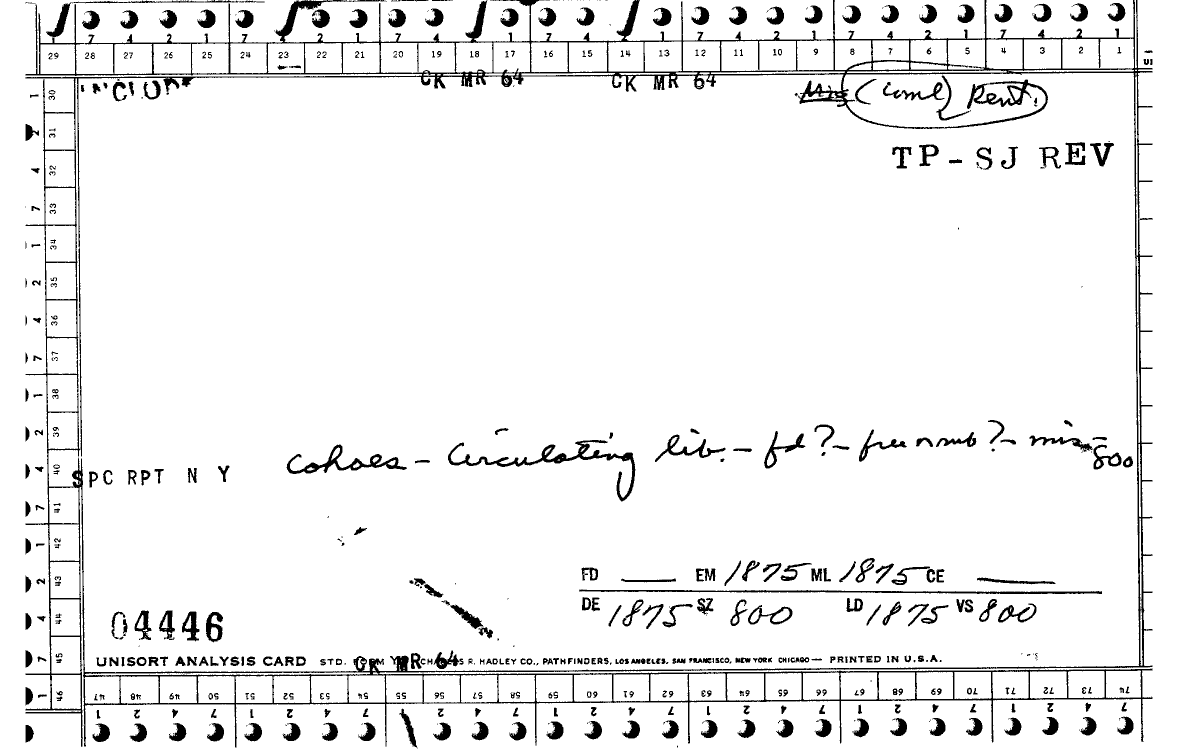 7 4 2 1 7 2 1 7 4 2 1 7 4 2 1 7 4 2 1 7 4 2 1 7 4 2 1
29 28 27 26 25 24 23 22 21 20 19 18 17 16 15 14 13 12 11 10 9 8 7 6 5 4 3 2 1
CK MR 64 CK MR 64
(Coml) Rent.
TP-SJ REV
1 30
2 31
4 32
7 33
1 34
2 35
4 36
7 37
1 38
2 39
4 40
7 41
1 42
2 43
4 44
7 45
1 46
SPC RPT N Y
Cohoes – Circulating lib. – fd? – free or sub? – mis – 800
FD ____ EM 1875 ML 1875 CE ____
DE 1875 SZ 800 LD 1875 VS 800
04446
UNISORT ANALYSIS CARD STD. FORM CHARLES R. HADLEY CO., PATHFINDERS, LOS ANGELES, SAN FRANCISCO, NEW YORK CHICAGO — PRINTED IN U.S.A.
CK MR 64
47 48 49 50 51 52 53 54 55 56 57 58 59 60 61 62 63 64 65 66 67 68 69 70 71 72 73 74
1 2 4 7 1 2 4 7 2 4 7 1 2 4 7 1 2 4 7 1 2 4 7 1 2 4 7